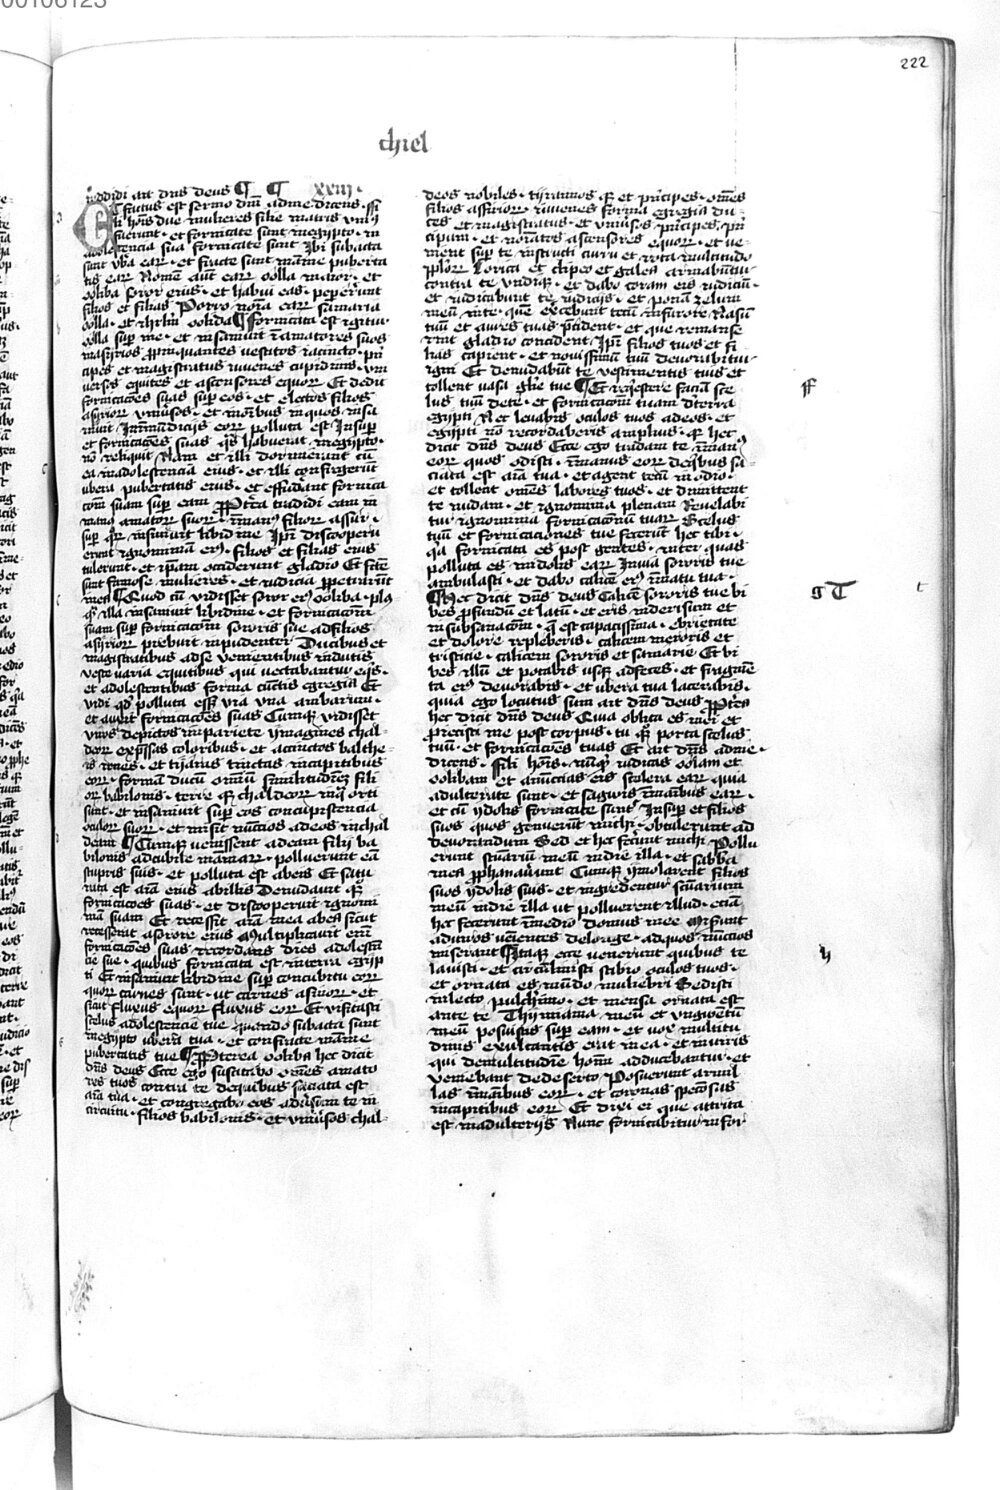 00106123
222
chiel
reddidi ait dns deus ¶ ¶ xxiij.
Et factus est sermo dni ad me dicens. fi
li hois due mulieres filie matris uni9
fuerunt. et fornicate sunt in egypto. in
adolescencia sua fornicate sunt Ibi subacta
sunt vbera earum. et fracte sunt mamme puberta
tis earum Nomina autem earum oolla maior. et
ooliba soror eius. et habui eas. pepererunt
filios et filias. Porro nomina earum samaria
oolla. et iherlm ooliba ¶ fornicata est igitur
oolla super me. et insaniuit in amatores suos
in assirios propinquantes vestitos iacincto. prin
cipes et magistratus iuuenes cupidinis. vni
uersos equites et ascensores equorum Et dedit
fornicacoes suas super eos. et electos filios
assirior vniuersos. et in omnibus in quos insa
niuit In inmundiciis eorum polluta est Insuper
et fornicacoes suas quas habuerat in egypto.
no reliquit Nam et illi dormierunt cu
ea in adolescencia eius. et illi confregerunt
ubera pubertatis eius. et effuderunt fornica
com suam super eam Propterea tradidi eam in
manus amatorum suorum. in manus filiorum assur.
super quorum insaniuit libidine Ipi discooperu
erunt ignominiam eius. filios et filias eius
tulerunt. et ipam occiderunt gladio Et fce
sunt famose mulieres. et iudicia perpetrarunt
in ea ¶ Quod cu vidisset soror eius ooliba. plus
qm illa insaniuit libidine. et fornicacom
suam super fornicacom sororis sue ad filios
assyriorum prebuit inpudenter Ducibus et
magistratibus ad se venientibus indutis
veste varia equitibus qui vectabantur equis.
et adolescentibus forma cunctis egregia Et
vidi qd polluta esset via vna ambarum.
et auxit fornicacoes suas Cumqz vidisset
viros depictos in pariete ymagines chal
deorum expressas coloribus. et accinctos balthe
is renes. et tyaras tinctas in capitibus
eorum. formam ducum omnium similitudinem fili
orum babilonis. terre qz chaldeorum in qua orti
sunt. et insaniuit super eos concupiscencia
oculorum suorum. et misit nuncios ad eos in chal
deam ¶ Cumqz venissent ad eam filij ba
bilonis ad cubile mammarum. polluerunt ea
stupris suis. et polluta est ab eis Et satu
rata est aia eius ab illis Denudauit qz
fornicacoes suas. et discooperuit ignomi
niam suam Et recessit aia mea ab ea sicut
recesserat a sorore eius Multiplicauit eni
fornicacoes suas recordans dies adolescen
cie sue. quibus fornicata est in terra egip
ti Et insaniuit libidine super concubitu eorum
quorum carnes sunt. ut carnes asinorum. et
sicut fluxus equorum fluxus eorum Et visitasti
scelus adolescencie tue quando subacta sunt
in egypto ubera tua. et confracte mamme
pubertatis tue ¶ Propterea ooliba hec dicit
dns deus Ecce ego suscitabo omes amato
res tuos contra te de quibus saciata est
aia tua. et congregabo eos aduersum te in
circuitu. filios babilonis. et vniuersos chal-
deos nobiles. tyrannos qz et principes. omes
filios assirior. iuuenes forma egregia du
ces et magistratus. et vniuersos principes prin
cipum. et noiatos ascensores equorum. et ve
nient super te instructi curru et rota multitudo
pplorum Lorica et clipeo et galea armabuntur
contra te vndiqz. et dabo coram eis iudiciu.
et iudicabunt te iudiciis. et ponam zelum
meum in te. quem exercebunt tecum in furore Nasum
tuum et aures tuas precident. et que remanse
rint gladio concident Ipi filios tuos et fi
lias capient. et nouissimum tuum deuorabitur
igni Et denudabunt te vestimentis tuis et
tollent vasa glorie tue ¶ Et requiescere faciam sce
lus tuum de te. et fornicacom tuam de terra
egypti Nec leuabis oculos tuos ad eos. et
egypti no recordaberis amplius. qz hec
dicit dns deus Ecce ego tradam te in manus
eorum quos odisti. in manus eorum de quibus sa
ciata est aia tua. et agent tecum in odio.
et tollent omes labores tuos. et dimittent
te nudam. et ignominia plenam Reuelabi
tur ignominia fornicacionum tuarum Scelus
tuum et fornicaciones tue fecerunt hec tibi.
qa fornicata es post gentes. inter quas
polluta es in ydolis earum In via sororis tue
ambulasti. et dabo calicem eius in manu tua.
¶ Hec dicit dns deus Calicem sororis tue bi
bes profundum et latum. et eris in derisum et
in subsanacom. que est capacissima. ebrietate
et dolore repleberis. calicem meroris et
tristicie. calicem sororis et samarie Et bi
bes illum et potabis usqz ad feces. et fragmen
ta eius deuorabis. et ubera tua lacerabis.
quia ego locutus sum ait dns deus Propterea
hec dicit dns deus Quia oblita es mei et
proiecisti me post corpus. tu qz porta scelus
tuum. et fornicacoes tuas Et ait dns ad me.
dicens. fili hois. nunqd iudicas oolam et
oolibam et annuncias eis scelera earum quia
adulterate sunt. et sanguis in manibus earum.
et cu ydolis fornicate sunt Insuper et filios
suos quos genuerunt michi. obtulerunt ad
deuorandum Sed et hec fecerunt michi Pollu
erunt sanctuarium meum in die illa. et sabba
mea prophanauerunt Cumqz ymolarent filios
suos ydolis suis. et ingrederentur sanctuarium
meum in die illa ut polluerent illud. etiam
hec fecerunt in medio domus mee Miserunt
ad viros venientes de longe. ad quos nuncios
miserant Itaqz ecce venerunt quibus te
lauisti. et circumlinisti stibio oculos tuos.
et ornata es mundo muliebri Sedisti
in lecto pulcherrimo. et mensa ornata est
ante te Thymiama meum et vngentum
meum posuisti super eam. et vox multitu
dinis exultantis erat in ea. et in viris
qui de multitudine hominum adducebantur. et
veniebant de deserto Posuerunt armil
las in manibus eorum. et coronas speciosas
in capitibus eorum Et dixi ei que attrita
est in adulterijs Nunc fornicabitur in for
ff
g T
t
h